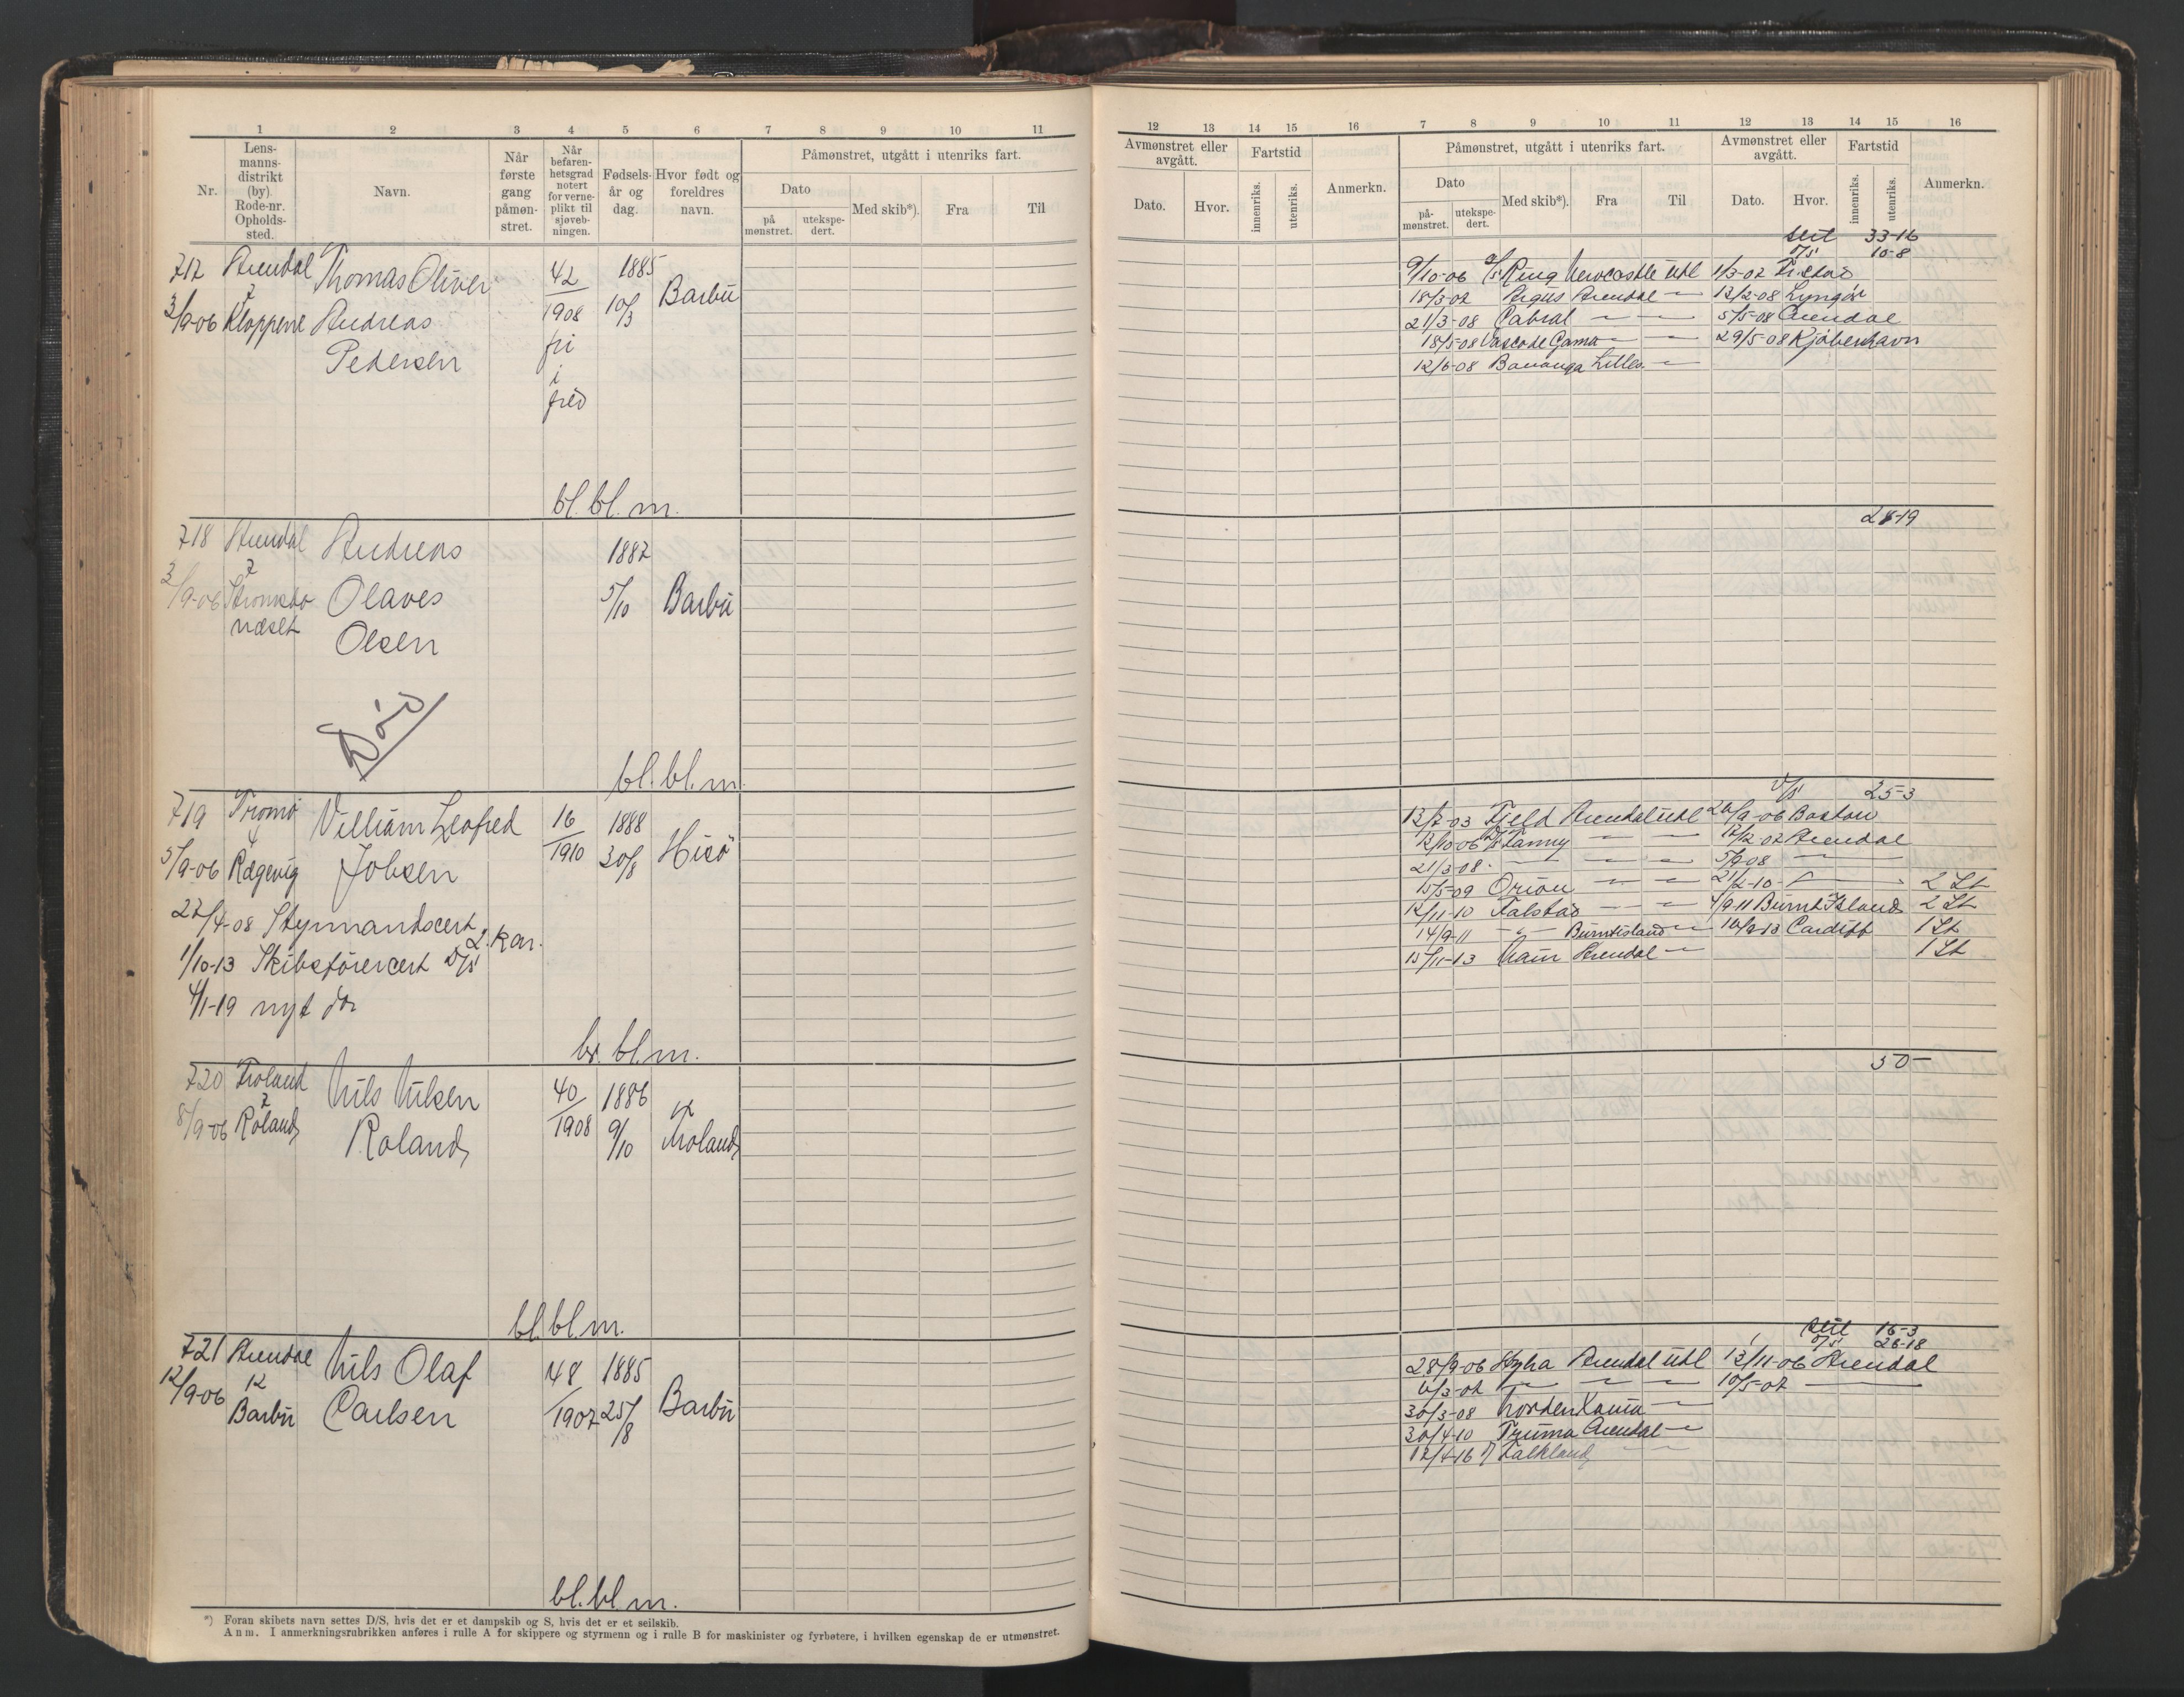 1 2 3 4 5 6 7 8 9 10 11
Nr.
Lens-
manns-
distrikt
(by).
Rode-nr.
Opholds-
sted.
Navn.
Når
første
gang
påmøn-
stret.
Når
befaren-
hetsgrad
notert
for verne-
plikt til
sjøveb-
ningen.
Fødsels-
år og
dag.
Hvor født og
foreldres
navn.
Påmønstret, utgått i utenriks fart.
Dato
på
mønstret.
utekspe-
dert.
Med skib*).
Fra
Til
717 Arendal Thomas Oliver 42 1885
7
3/9-06 Kloppene Andreas 1908 10/3 Barbu
Pedersen fri
i
fred
bl. bl. m.
718 Arendal Andreas 1887
7
3/9-06 Strømsbo Olaves 5/10 Barbu
næset
Olsen
Død
bl. bl. m.
719 Tromø William Leofred 16 1888
4
5/9-06 Rægevig Jobsen 1910 30/8 Hisø
27/4-08 Styrmandscert 2. kar.
1/10-13 Skibsførercert D/S
4/1-19 nyt do
br. bl. m.
720 Froland Nils Nilsen 40 1886
7
8/9-06 Roland Roland 1908 9/10 Ø Moland
bl. bl. m.
721 Arendal Nils Olaf 48 1885
12
12/9-06 Barbu Carlsen 1907 25/8 Barbu
bl. bl. m.
*) Foran skibets navn settes D/S, hvis det er et dampskib og S, hvis det er et seilskib.
Anm. I anmerkningsrubrikken anføres i rulle A for skippere og styrmenn og i rulle B for maskinister og fyrbøtere, i hvilken egenskap de er utmønstret.
12 13 14 15 16 7 8 9 10 11 12 13 14 15 16
Avmønstret eller
avgått.
Dato.
Hvor.
Fartstid
innenriks.
utenriks.
Anmerkn.
Påmønstret, utgått i utenriks fart.
Dato
på-
mønstret.
utekspe-
dert.
Med skib*).
Fra
Til
Avmønstret eller
avgått.
Dato.
Hvor.
Fartstid
innenriks.
utenriks.
Anmerkn.
seil 33-16
D/S 10-8
9/10-06 S/S Ring Newcastle utl 1/3-07
18/3-07 Argus Arendal — 12/2-08 Lyngør
21/3-08 Cabral — — 5/5-08 Arendal
18/5-08 Vasco de Gama — — 29/5-08 Kjøbenhavn
12/6-08 Bananga Lilles. —
28-19
D/S 25-3
12/7-03 Fjeld Arendal utl 26/9-06 Boston
12/10-06 D/S Fanny — — 17/2-07 Arendal
21/3-08 — — — 5/9-08 —
15/5-09 Orion — — 21/2-10 — 2 St
12/11-10 Falstad — — 4/9-11 Burnt Island 2 St
14/9-11 — " — Burntisland — 16/9-13 Cardiff 1 St
15/11-13 Nain Arendal — 1 St
50-
seil 16-3
D/S 26-18
28/9-06 Hyha Arendal utl 12/11-06 Arendal
6/3-07 — — — 10/5-07 —
30/3-08 Norden —
30/4-10 Truma Arendal —
12/4-16 Falkland — —